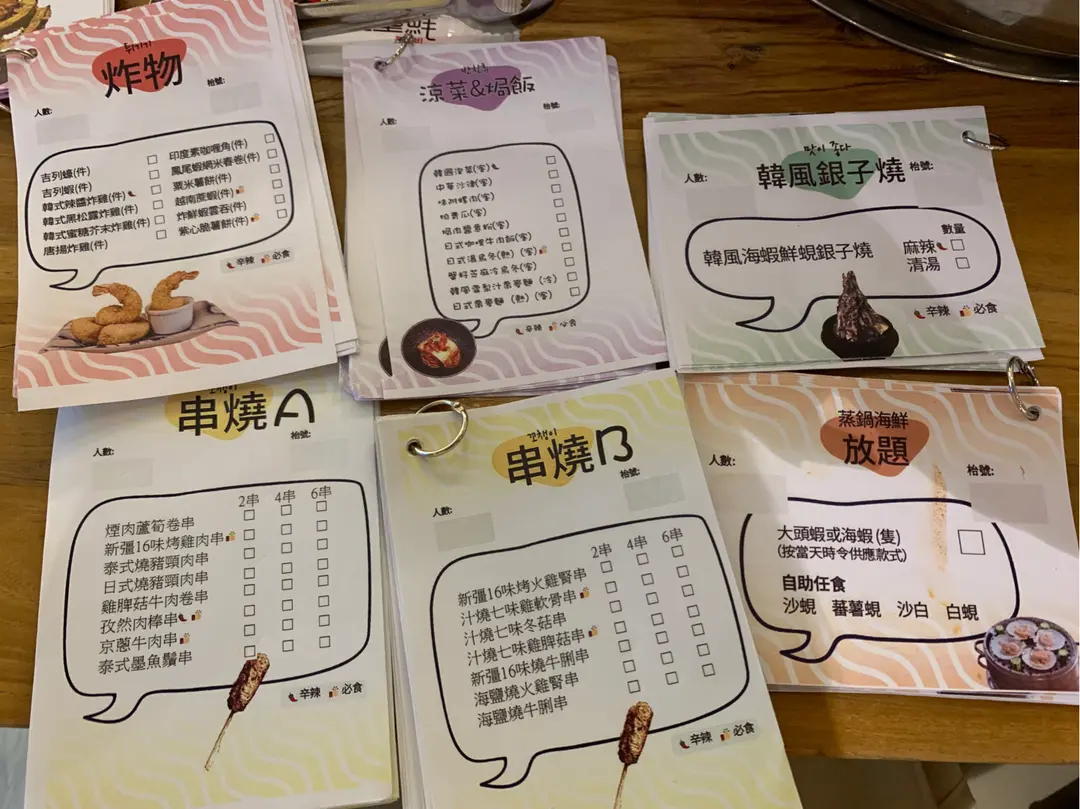 炸物
人數:
枱號:
吉列蠔(件)
吉列蝦(件)
韓式辣醬炸雞(件)
韓式黑松露炸雞(件)
韓式蜜糖芥末炸雞(件)
唐揚炸雞(件)
印度素咖喱角(件)
鳳尾蝦網米春卷(件)
粟米薯餅(件)
越南蔗蝦(件)
炸鮮蝦雲吞(件)
紫心脆薯餅(件)
辛辣 必食
涼菜&焗飯
人數:
枱號:
韓國泡菜(客)
中華沙律(客)
味付螺肉(客)
拍青瓜(客)
日式咖喱牛肉飯(客)
日式湯烏冬(熱)(客)
蟹籽芝麻冷烏冬(客)
韓風雪梨汁蕎麥麵(冷)
日式蕎麥麵(熱)(客)
辛辣 必食
맛이 좋다
韓風銀子燒
人數:
枱號:
數量
韓風海蝦鮮蜆銀子燒
麻辣
清湯
辛辣 必食
串燒A
人數:
枱號:
2串 4串 6串
煙肉蘆筍卷串
新疆16味烤雞肉串
泰式燒豬頸肉串
日式燒豬頸肉串
雞脾菇牛肉卷串
孜然肉棒串
京蔥牛肉串
泰式墨魚鬚串
辛辣 必食
꼬챙이
串燒B
人數:
枱號:
2串 4串 6串
新疆16味烤火雞腎串
汁燒七味雞軟骨串
汁燒七味冬菇串
汁燒七味雞脾菇串
新疆16味燒牛脷串
海鹽燒火雞腎串
海鹽燒牛脷串
辛辣 必食
蒸鍋海鮮
放題
人數:
枱號:
大頭蝦或海蝦(隻)
(按當天時令供應款式)
自助任食
沙蜆 蕃薯蜆 沙白 白蜆